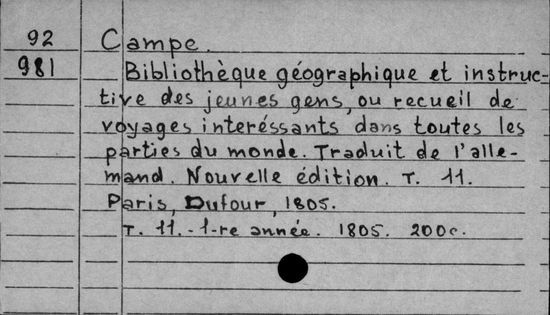 92 Campe.
981 Bibliothèque géographique et instruc-
tive des jeunes gens, ou recueil de
voyages interéssants dans toutes les
parties du monde. Traduit de l'alle-
mand. Nouvelle édition. T. 11.
Paris, Dufour, 1805.
T. 11. - 1-re année. 1805. 200c.